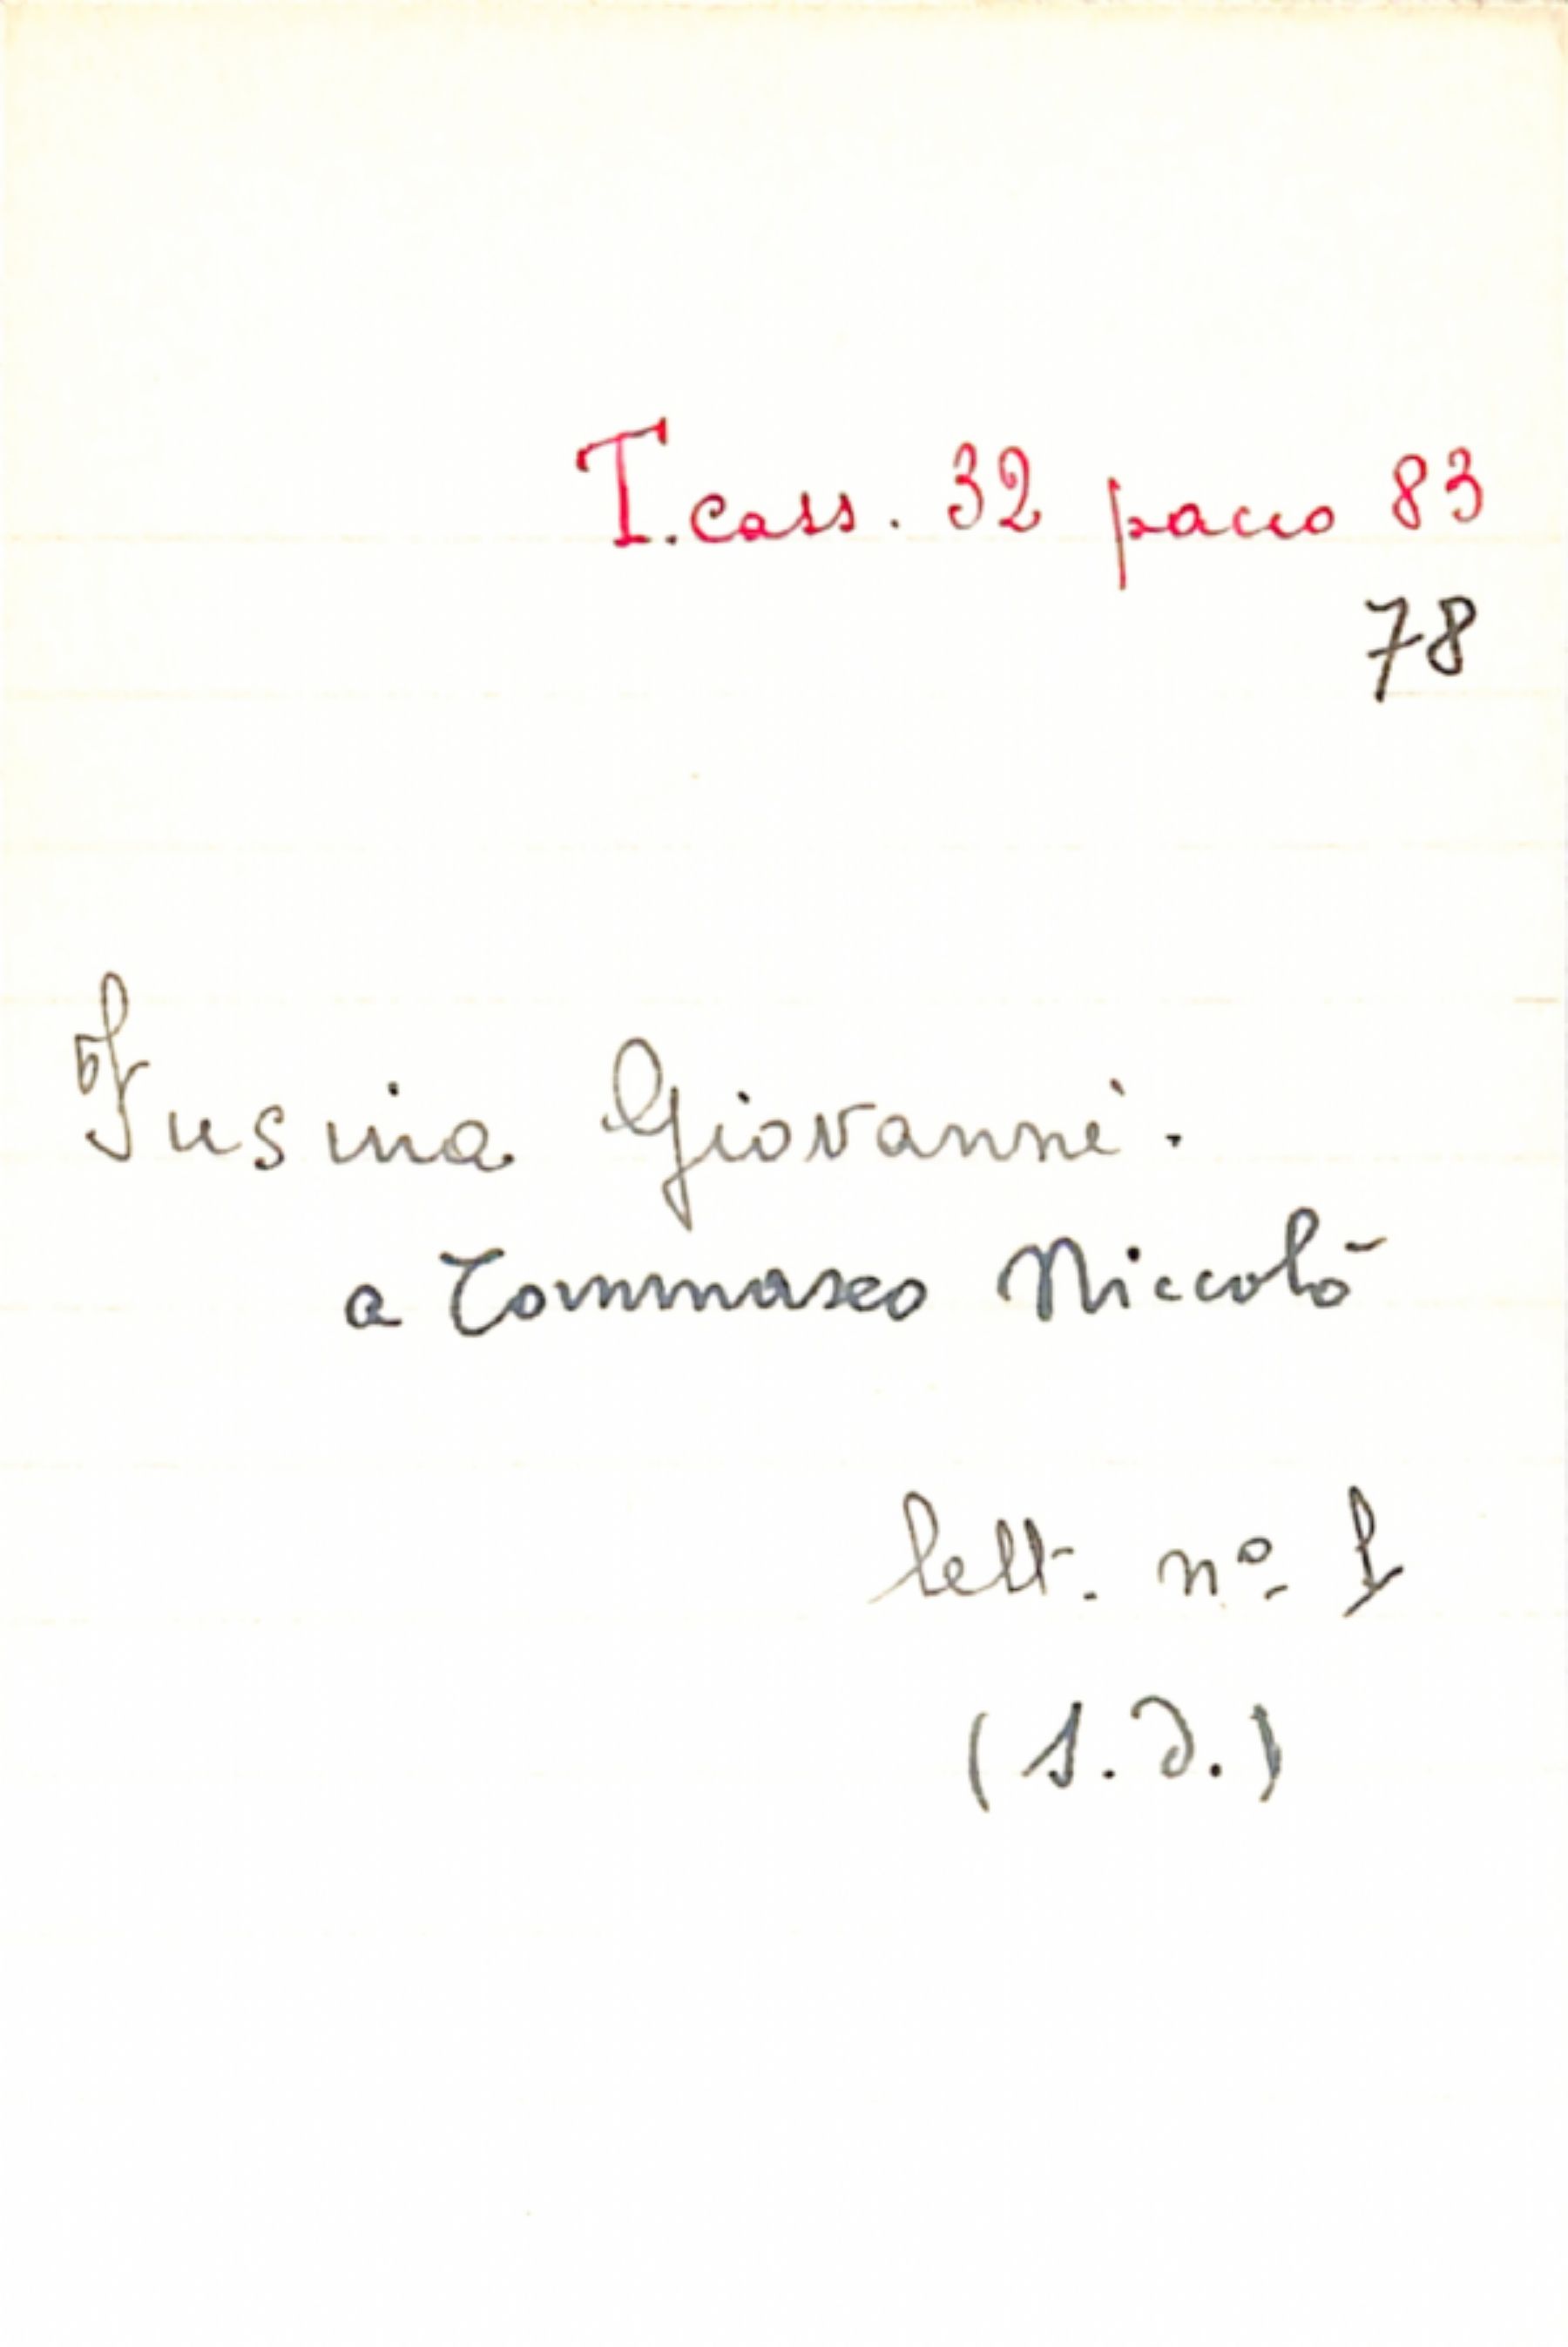 T. cass. 32 pacco 83
78
Fusina Giovanni.
a Tommaseo Niccolò
lett. nº 1
(s.d.)